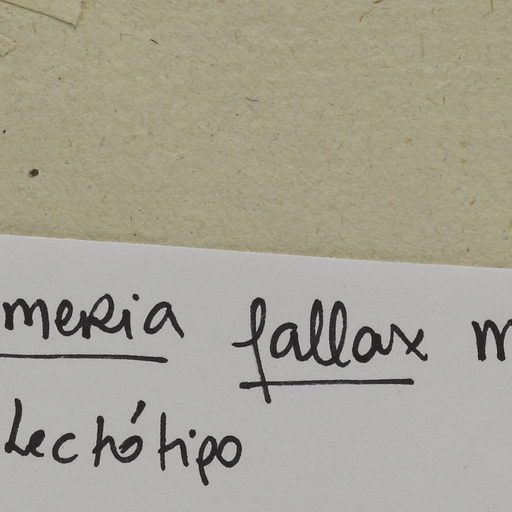 meria fallax m
Lectótipo